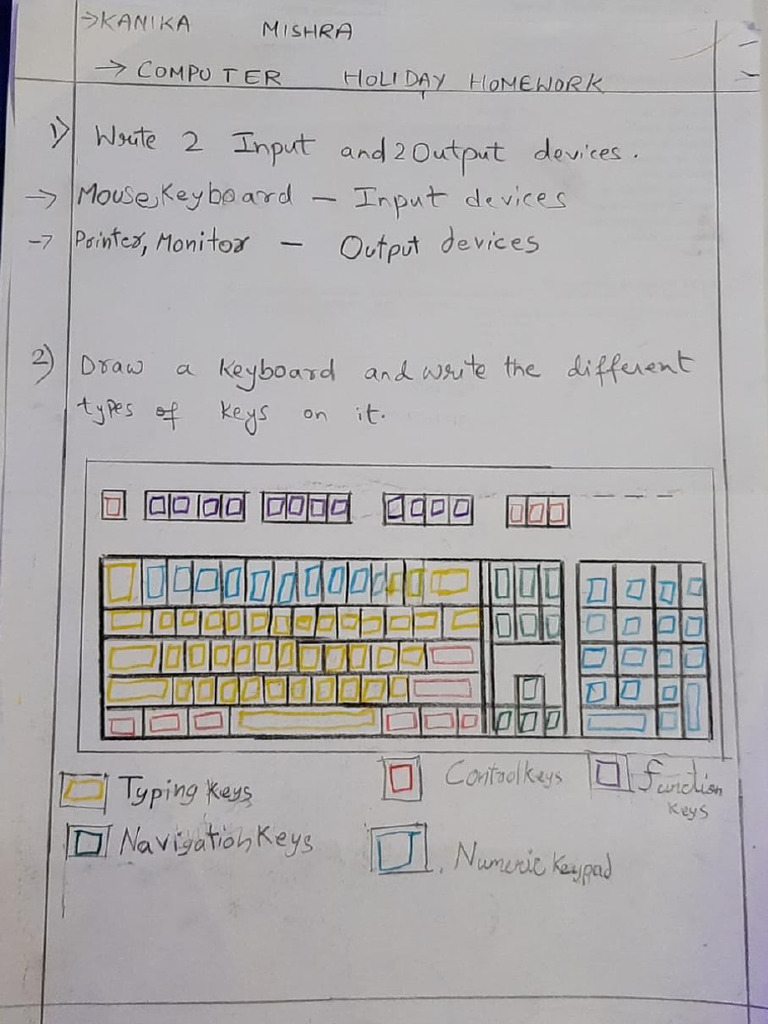 →KANIKA MISHRA
→ COMPUTER HOLIDAY HOMEWORK
1) Write 2 Input and 2 Output devices.
→ Mouse, Keyboard – Input devices
→ Printer, Monitor – Output devices
2) Draw a keyboard and write the different
types of keys on it.
Typing keys
Control keys
function
keys
Navigation Keys
Numeric keypad